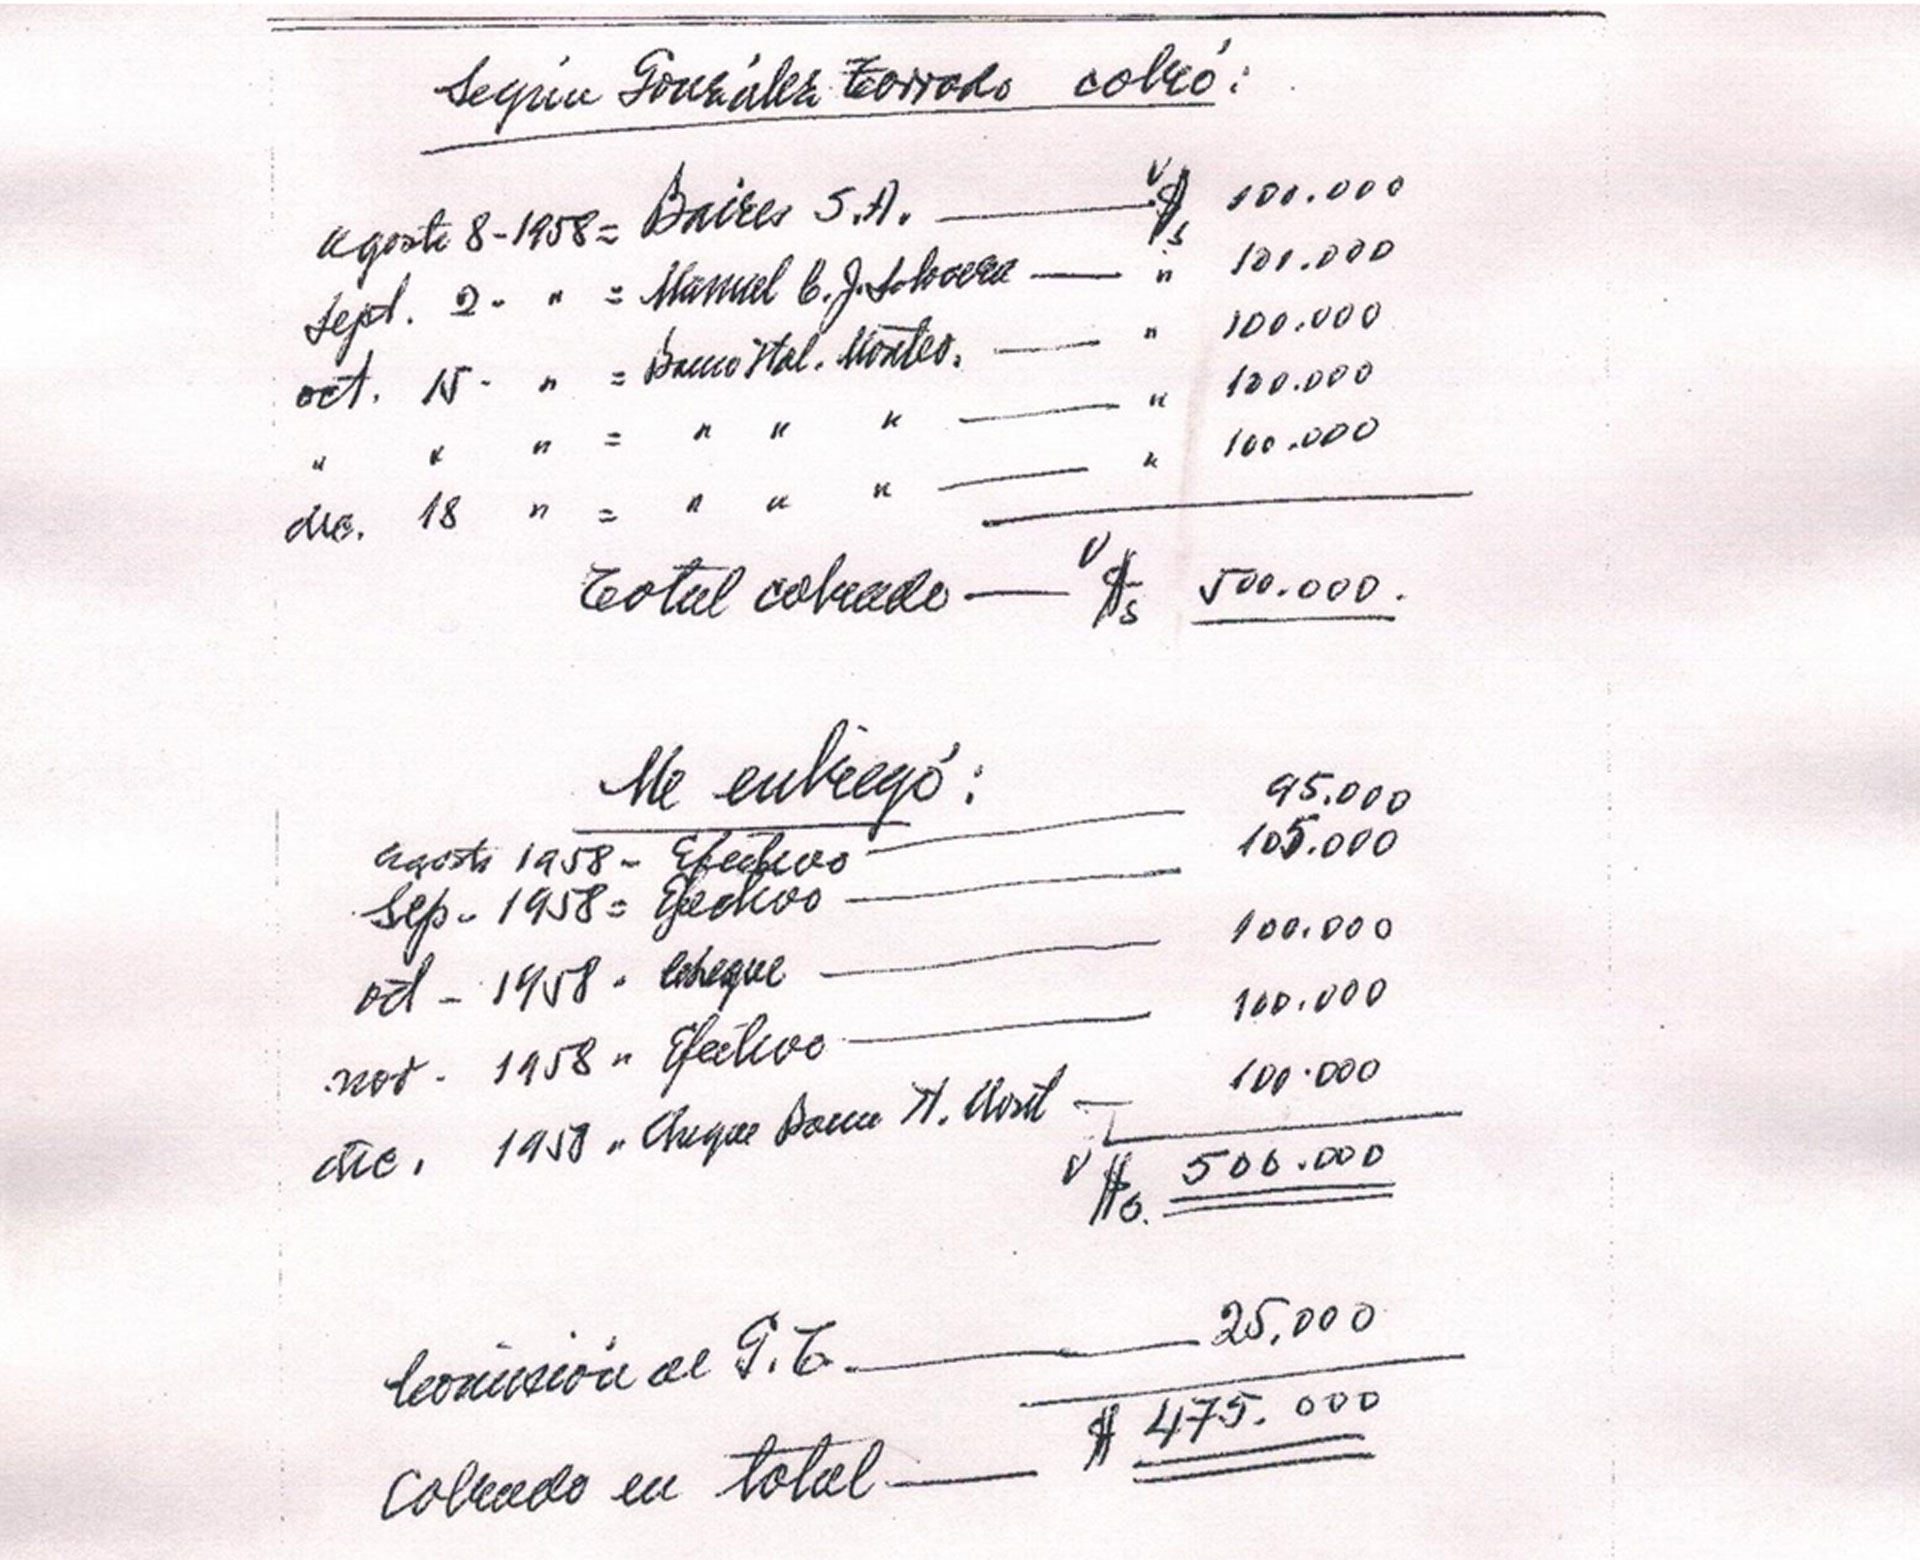 Según González Torrado cobró:
agosto 8-1958 = Baires S.A. — U$S 100.000
sept. 2 - " = Manuel C. J. — " 100.000
oct. 15 - " = Banco Ital. Montev. — " 100.000
" " " = " " " — " 100.000
dic. 18 " = " " " — " 100.000
Total cobrado — U$S 500.000.
Me entregó:
agosto 1958 - Efectivo — 95.000
Sep - 1958 = Efectivo — 105.000
oct - 1958 - cheque — 100.000
nov - 1958 " Efectivo — 100.000
dic. 1958 " Cheque Banco It. Mont — 100.000
U$S. 500.000
Comisión de G.T. — 25.000
Cobrado en total — $ 475.000